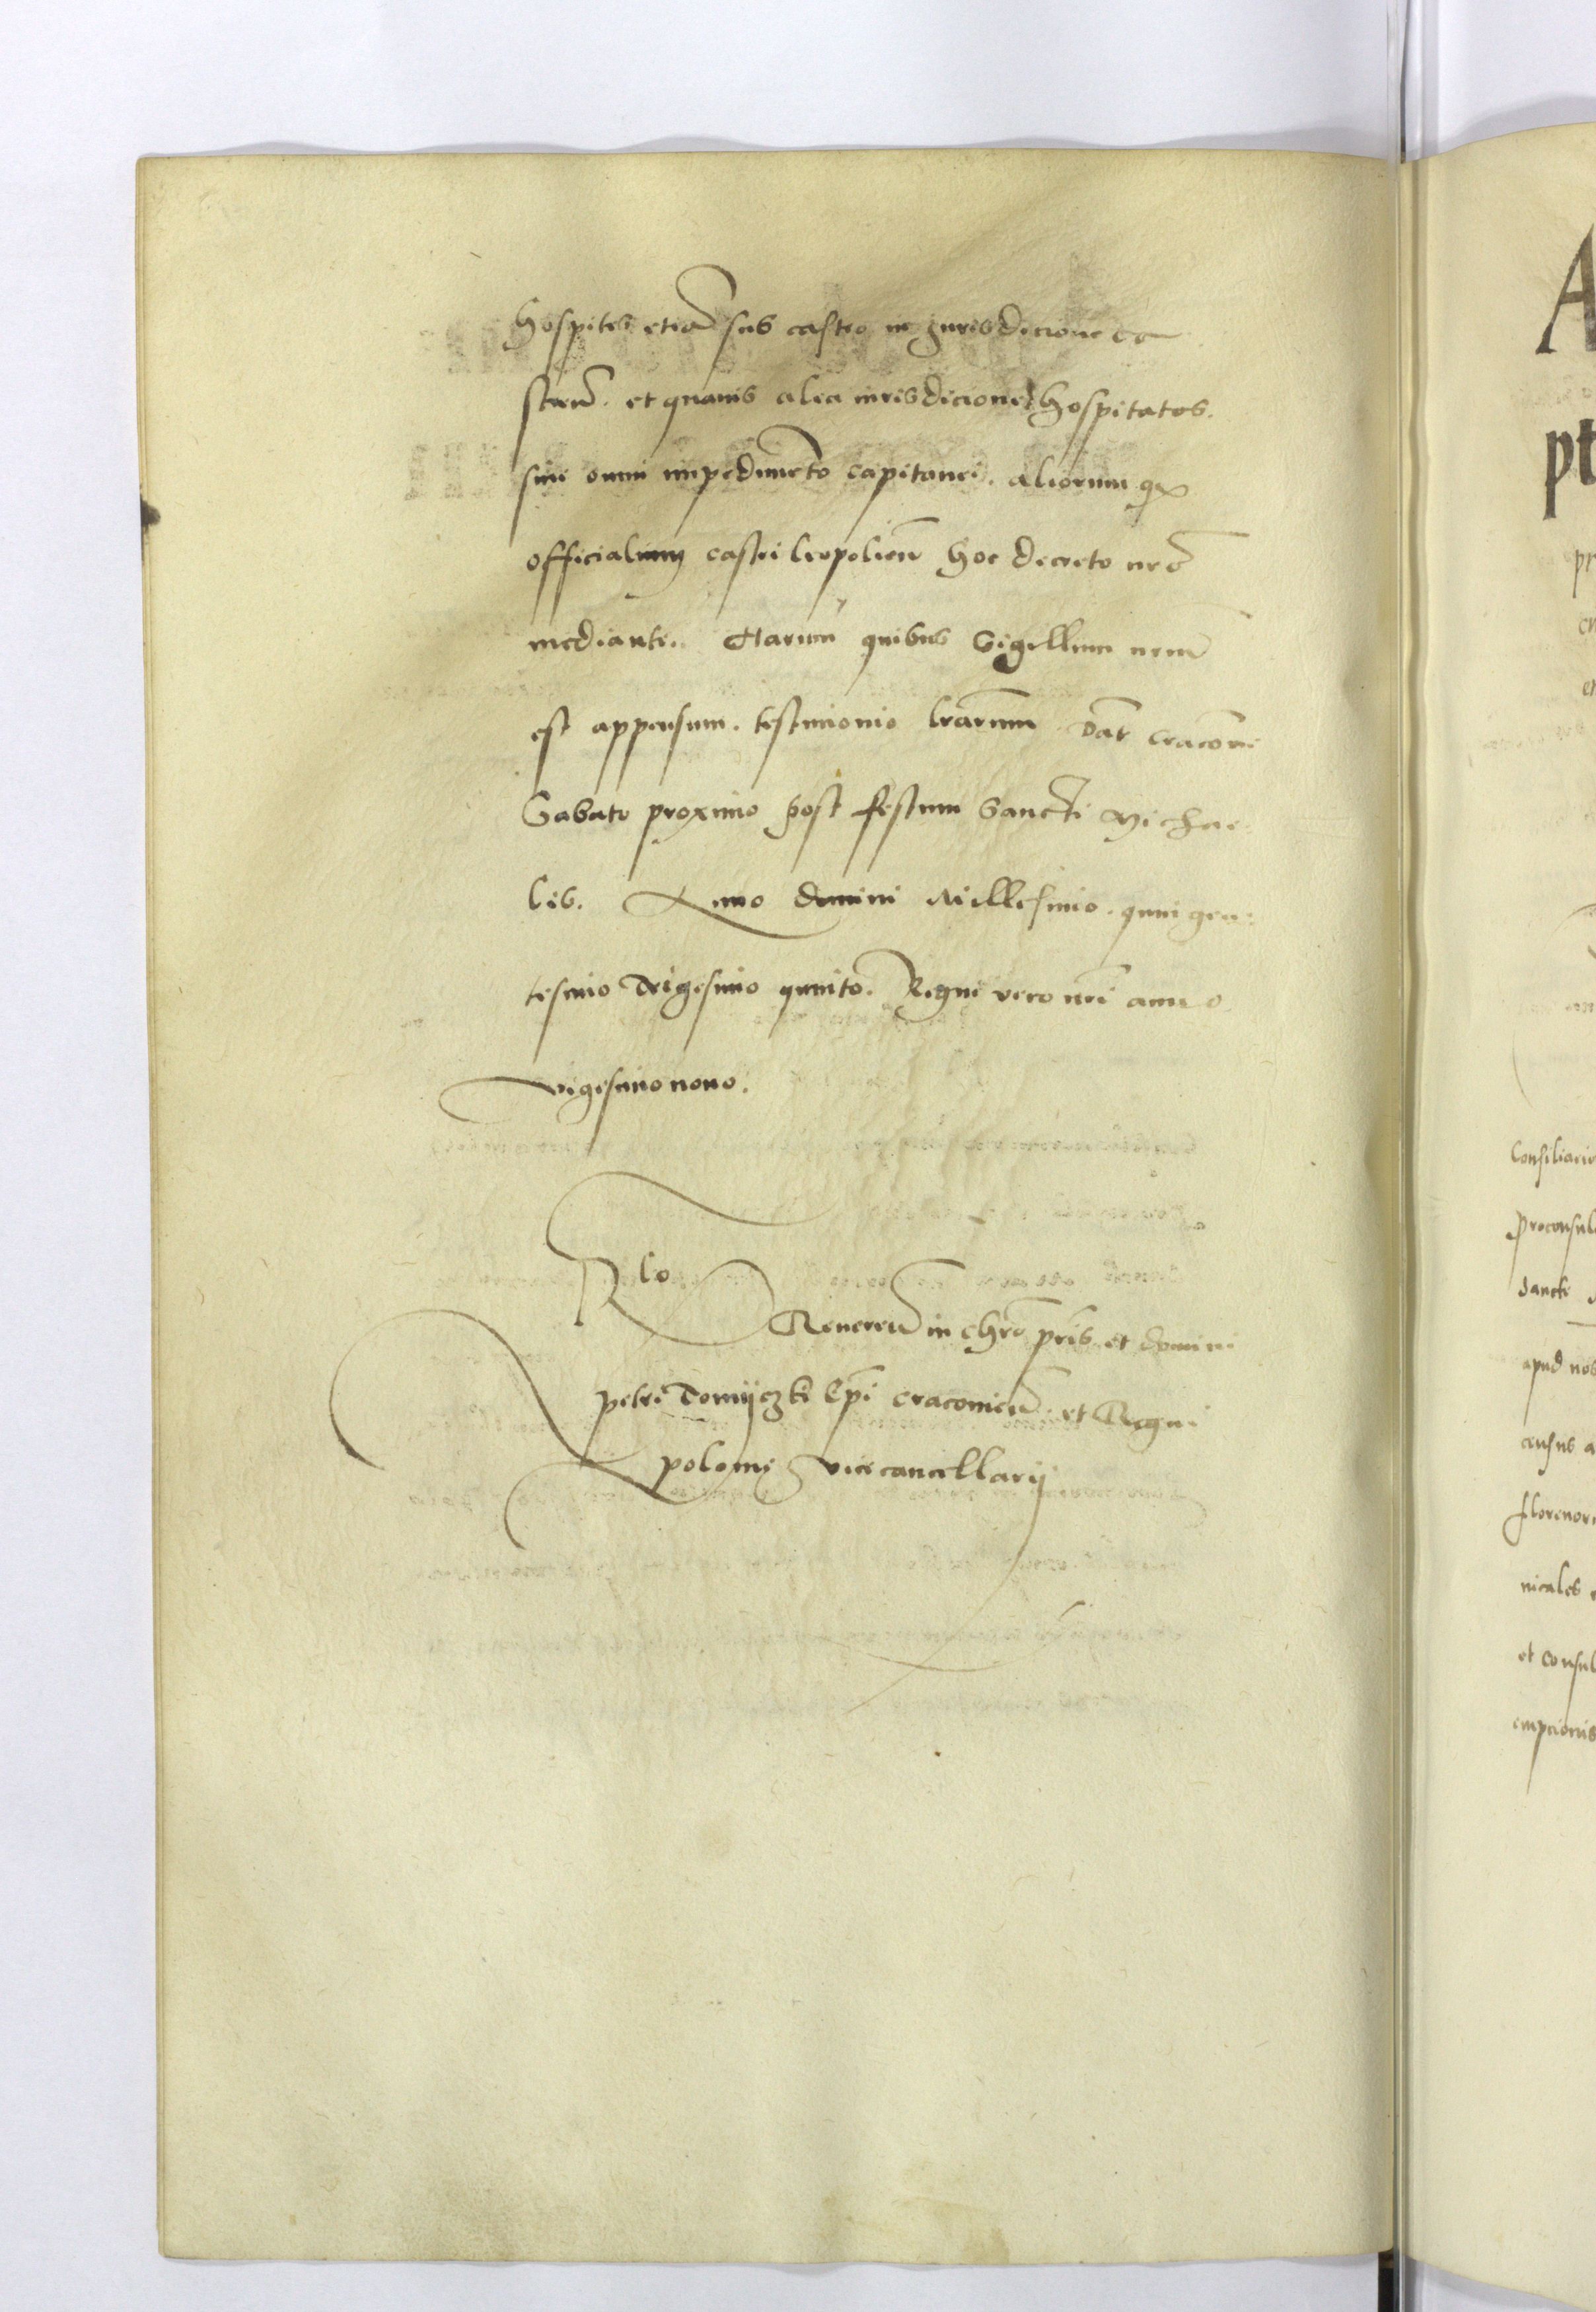 hospites etiā sub castro in Jurisdicione ca
streñ. et quauis alia iurisdicione hospitatos.
sine omni impedimēto capitanei. aliorum qȝ
officialium castri leopolieñ hoc decreto nr̄o
mediante. Harum quibus Sigillum nrm̄
est appensum. testimonio lrārum Dāt Cracōuie
Sabato proximo post festum Sancti Michae
lis. Anno domini Millesimo. quingen:
tesimo Trigesimo quinto. Regni vero nr̄i anno
vigesimonono.
Rlo
Reuereñ in Chrō pr̄is et domini
petri Tomijczki Ep̄i Cracouieñ. et Regni
polonie vicecancellarij
A
pt
pr
et
Consiliario
proconsul
dancte
apud nob
census a
florenor
nicales
et consul
empcionis